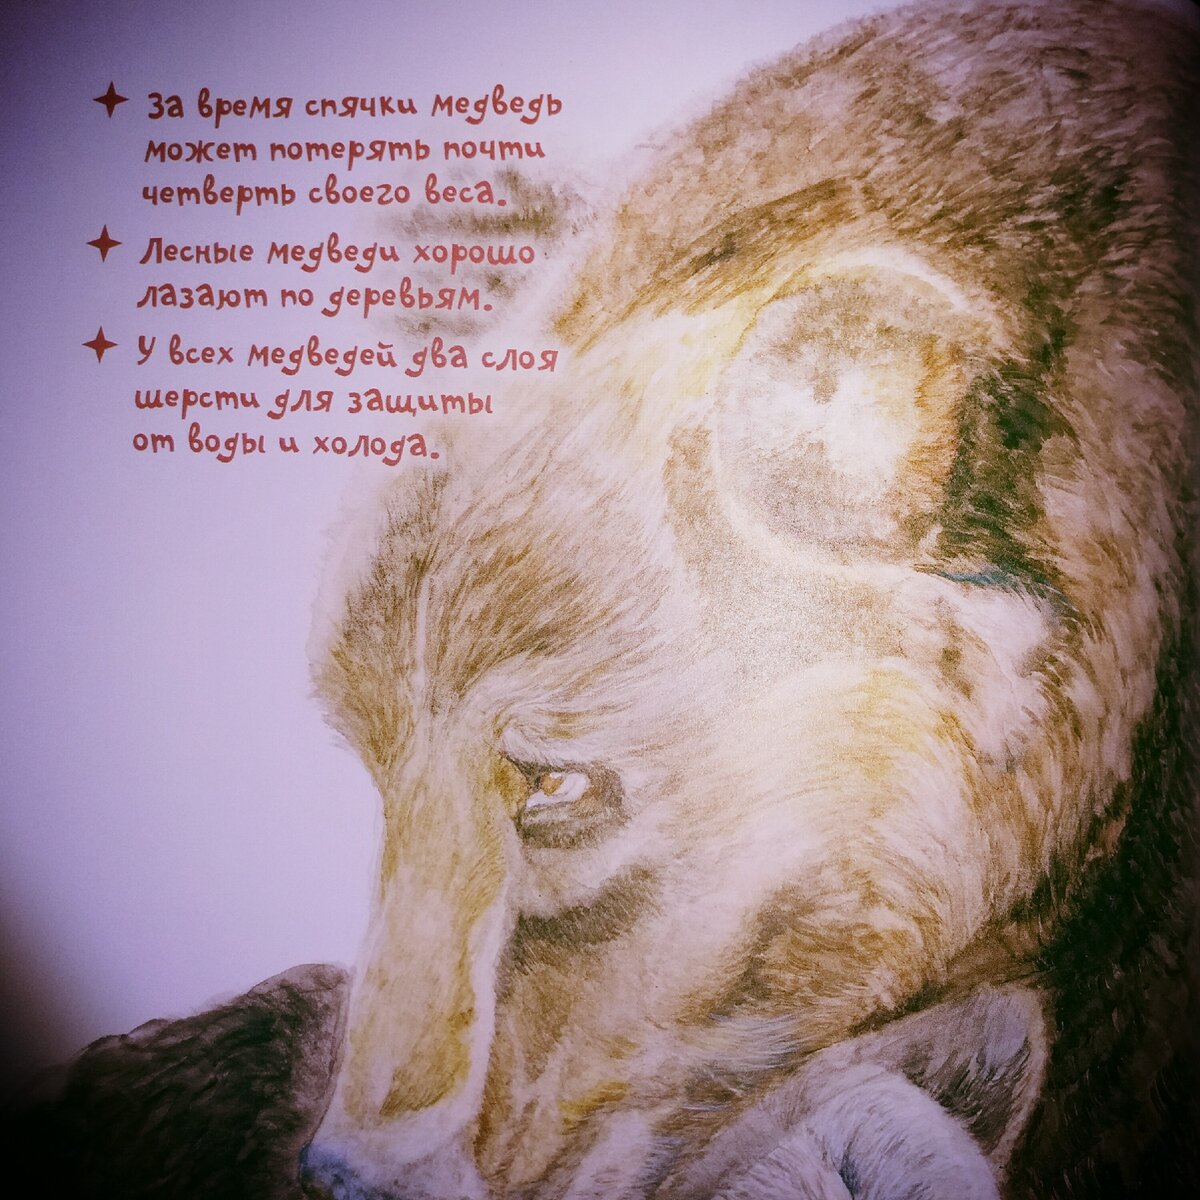 За время спячки медведь
может потерять почти
четверть своего веса.
Лесные медведи хорошо
лазают по деревьям.
У всех медведей два слоя
шерсти для защиты
от воды и холода.